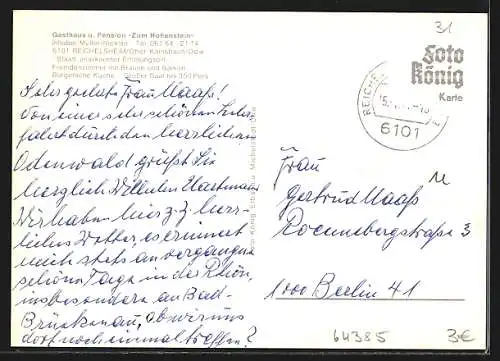 Gasthaus u. Pension »Zum Hohenstein«
Inhaber Tel. 061 64 - 21 74
6101 REICHELSHEIM/Ober-Kainsbach-Odw.
Staatl. anerkannter Erholungsort
Fremdenzimmer mit Brause und Balkon
Bürgerliche Küche Großer Saal bis 350 Pers.
Sehr geehrte Frau Maaß!
Von einer sehr schönen
fahrt durch den herrlichen
Odenwald grüßt Sie
herzlich
Wir haben hier z. Z. herr-
liches Wetter, es erinnert
mich stets an vergangene
schöne Tage in der Rhön,
insbesondere an Bad-
Brückenau, ob wir uns
dort noch einmal treffen?
31
Foto
König
Karte
REICHE
6101
Frau
Gertrud Maaß
3
1000 Berlin 41
64385
3€